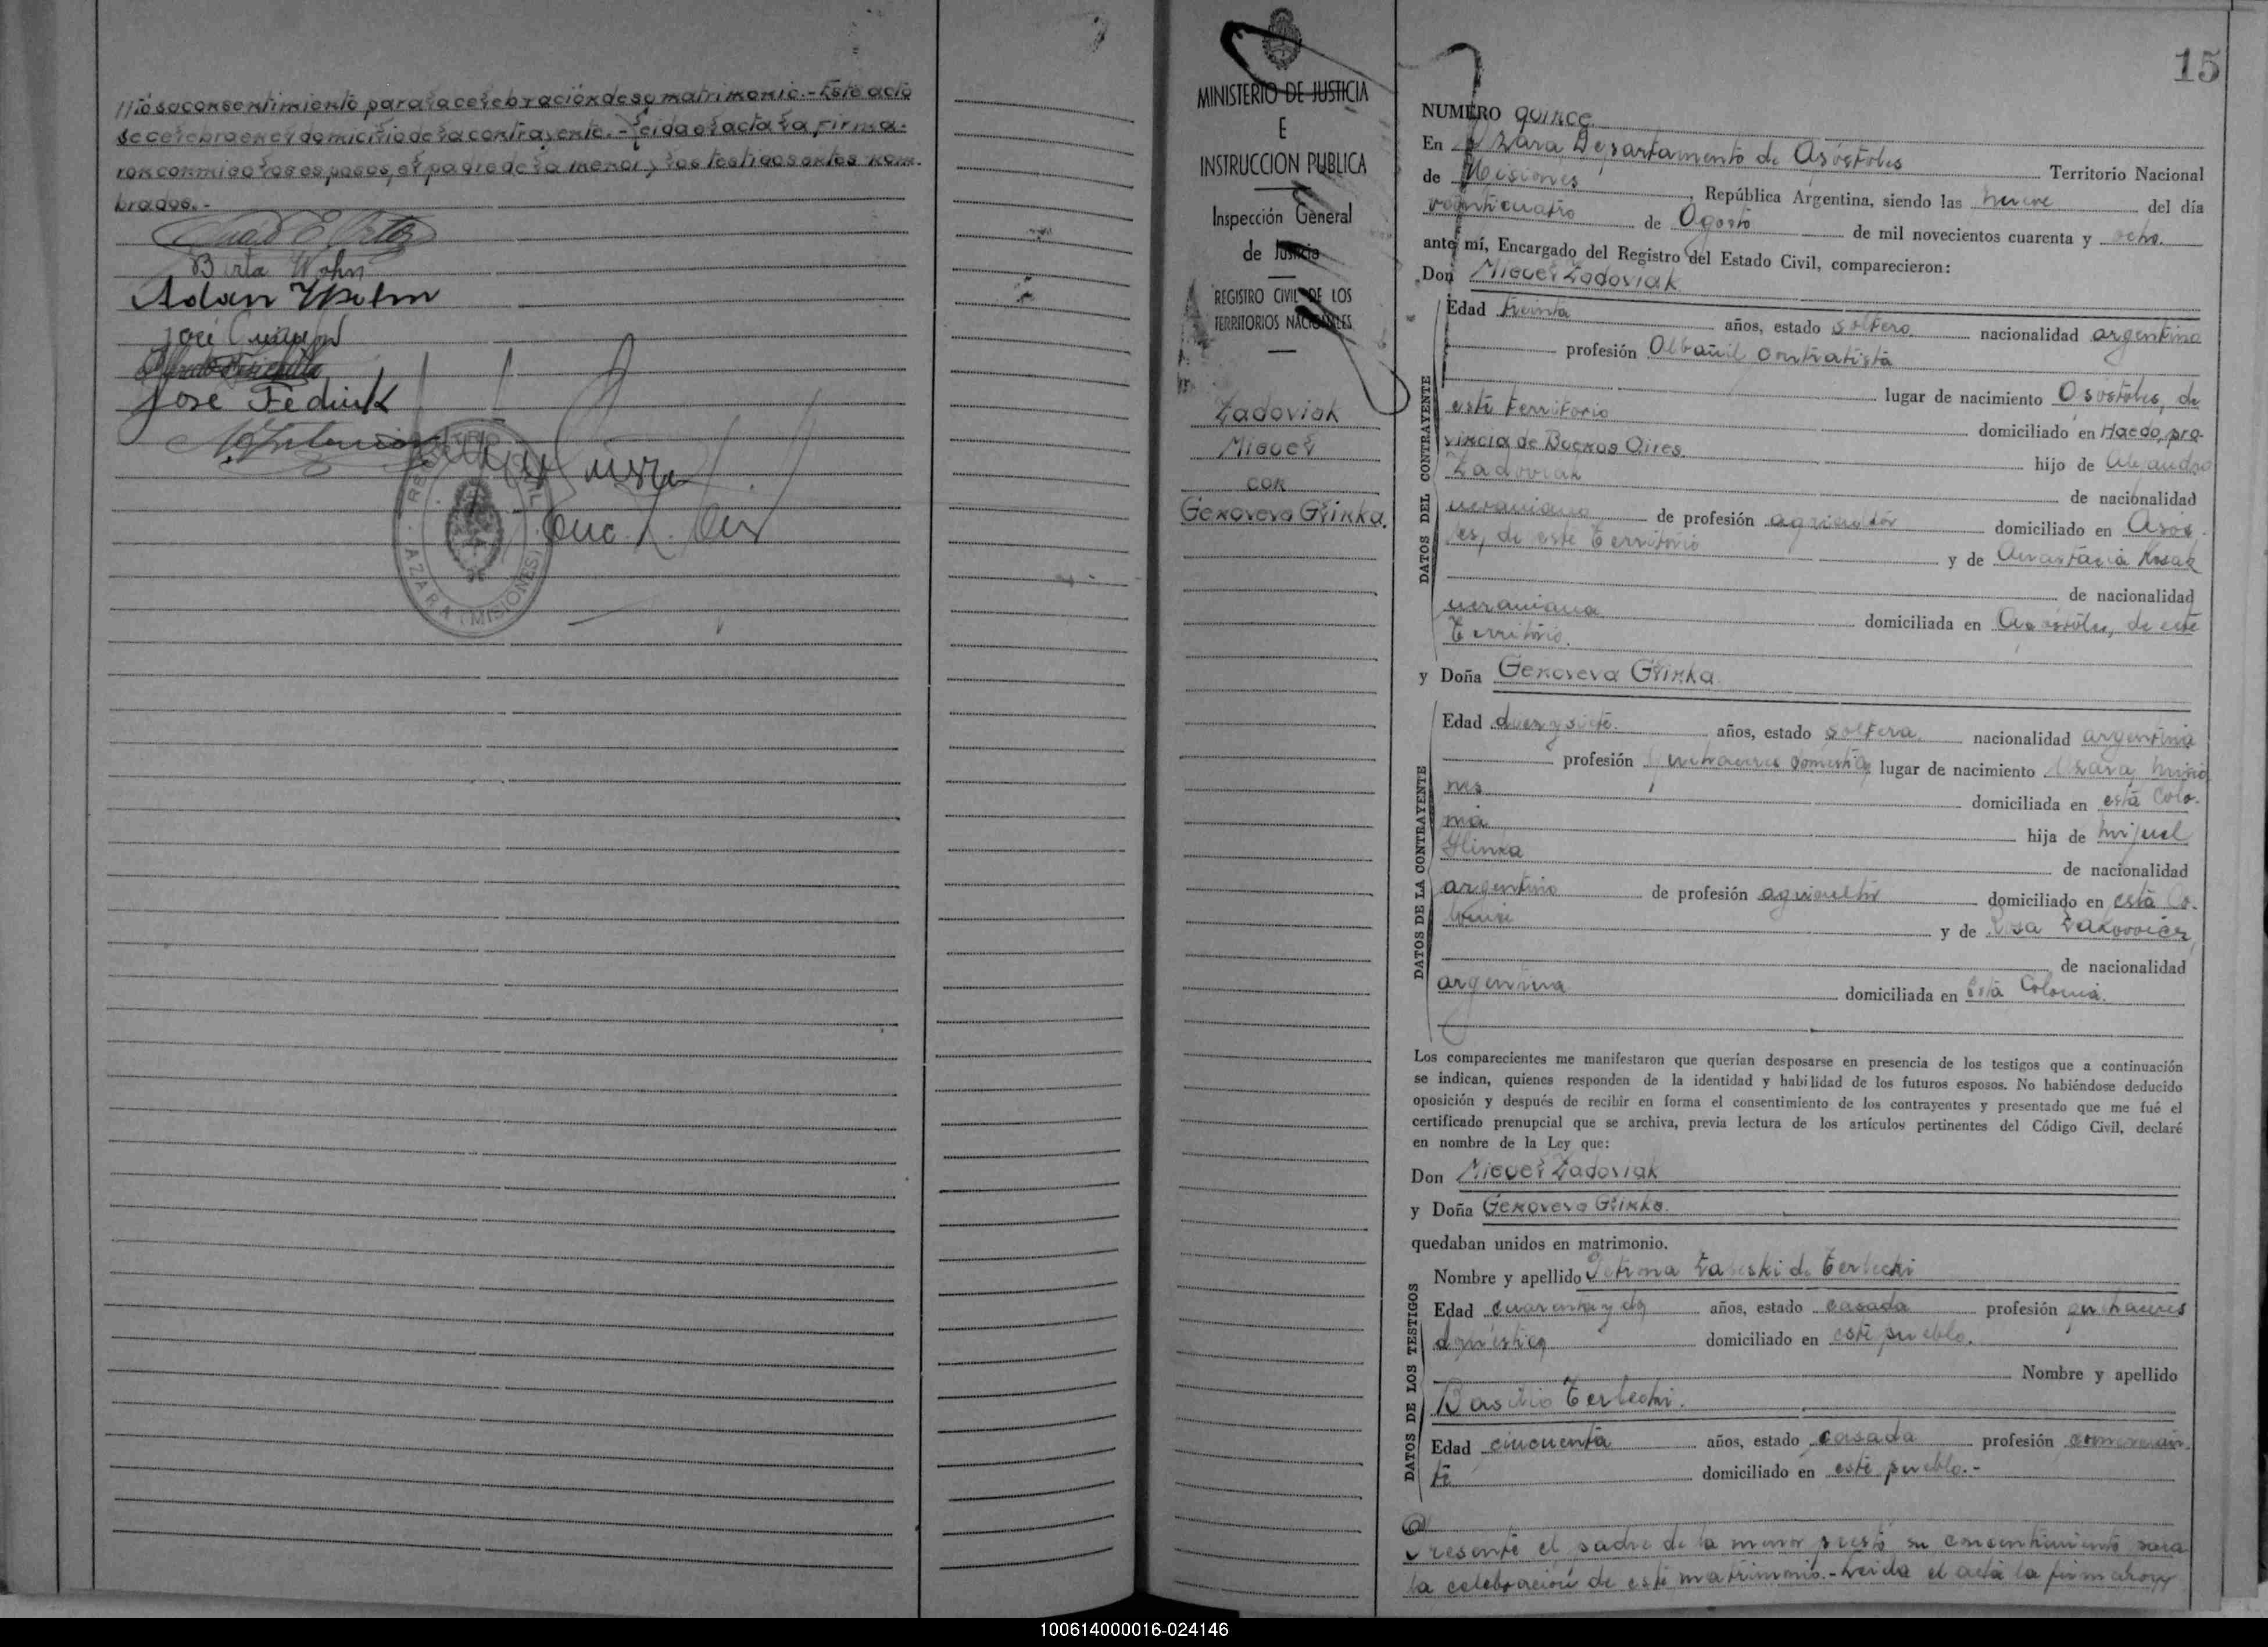 //tó su consentimiento para la celebración de su matrimonio.- Este acto
se celebra en el domicilio de la contrayente.- Leida el acta la firma-
ron conmigo los esposos, el padre de la menor y los testigos antes nom-
brados.-
Juan E. Ortos
Berta Wohn
Adan Wohn
José
José Fediuk
REGISTRO CIVIL
AZARA (MISIONES)
Enc.
MINISTERIO DE JUSTICIA
E
INSTRUCCION PUBLICA
Inspección General
de Justicia
REGISTRO CIVIL DE LOS
TERRITORIOS NACIONALES
Zadoviak
Miguel
con
Genoveva Glinka.
15
NUMERO quince.
En Azara Departamento de Apóstoles Territorio Nacional
de Misiones, República Argentina, siendo las nueve del día
veinticuatro de Agosto de mil novecientos cuarenta y ocho.
ante mí, Encargado del Registro del Estado Civil, comparecieron:
Don Miguel Zadoviak
DATOS DEL CONTRAYENTE
Edad treinta años, estado soltero. nacionalidad argentina
profesión Albañil contratista
lugar de nacimiento Apóstoles, de
este territorio domiciliado en Haedo, pro-
vincia de Buenos Aires. hijo de Alejandro
Zadoviak de nacionalidad
ucraniano de profesión agricultor domiciliado en Após-
les, de este Territorio y de Anastacia Kosak
de nacionalidad
ucraniana domiciliada en Apóstoles, de este
Territorio.
y Doña Genoveva Glinka.
DATOS DE LA CONTRAYENTE
Edad diez y siete. años, estado soltera. nacionalidad argentina
profesión quehaceres domésticos lugar de nacimiento Azara, Misio
nes domiciliada en esta Colo-
nia hija de Miguel
Glinka de nacionalidad
argentino de profesión agricultor domiciliado en esta Co-
lonia y de Rosa Zakovvicz,
de nacionalidad
argentina domiciliada en esta Colonia.
Los comparecientes me manifestaron que querían desposarse en presencia de los testigos que a continuación
se indican, quienes responden de la identidad y habilidad de los futuros esposos. No habiéndose deducido
oposición y después de recibir en forma el consentimiento de los contrayentes y presentado que me fué el
certificado prenupcial que se archiva, previa lectura de los artículos pertinentes del Código Civil, declaré
en nombre de la Ley que:
Don Miguel Zadoviak
y Doña Genoveva Glinka.
quedaban unidos en matrimonio.
DATOS DE LOS TESTIGOS
Nombre y apellido Petrona de Terlecki
Edad cuarenta y dos años, estado casada profesión quehaceres
domésticos domiciliado en este pueblo.
Nombre y apellido
Basilio Terlecki.
Edad cincuenta años, estado casada profesión comercian-
te domiciliado en este pueblo.-
Presente el padre de la menor prestó su concentimiento para
la celebración de este matrimonio.- Leida el acta la firmaron
100614000016-024146